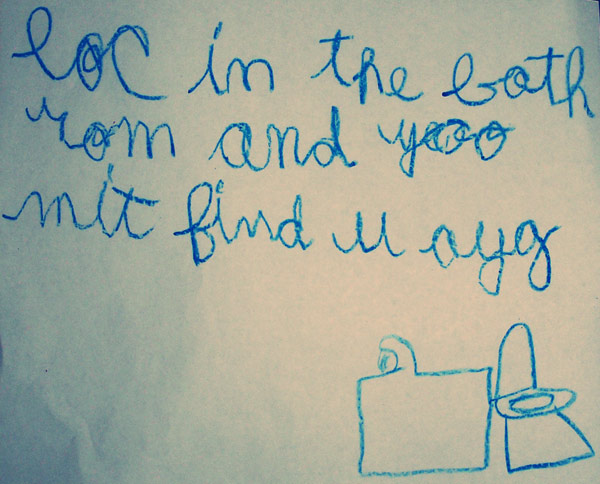 loc in the both
rom and yoo
mit find u ayg